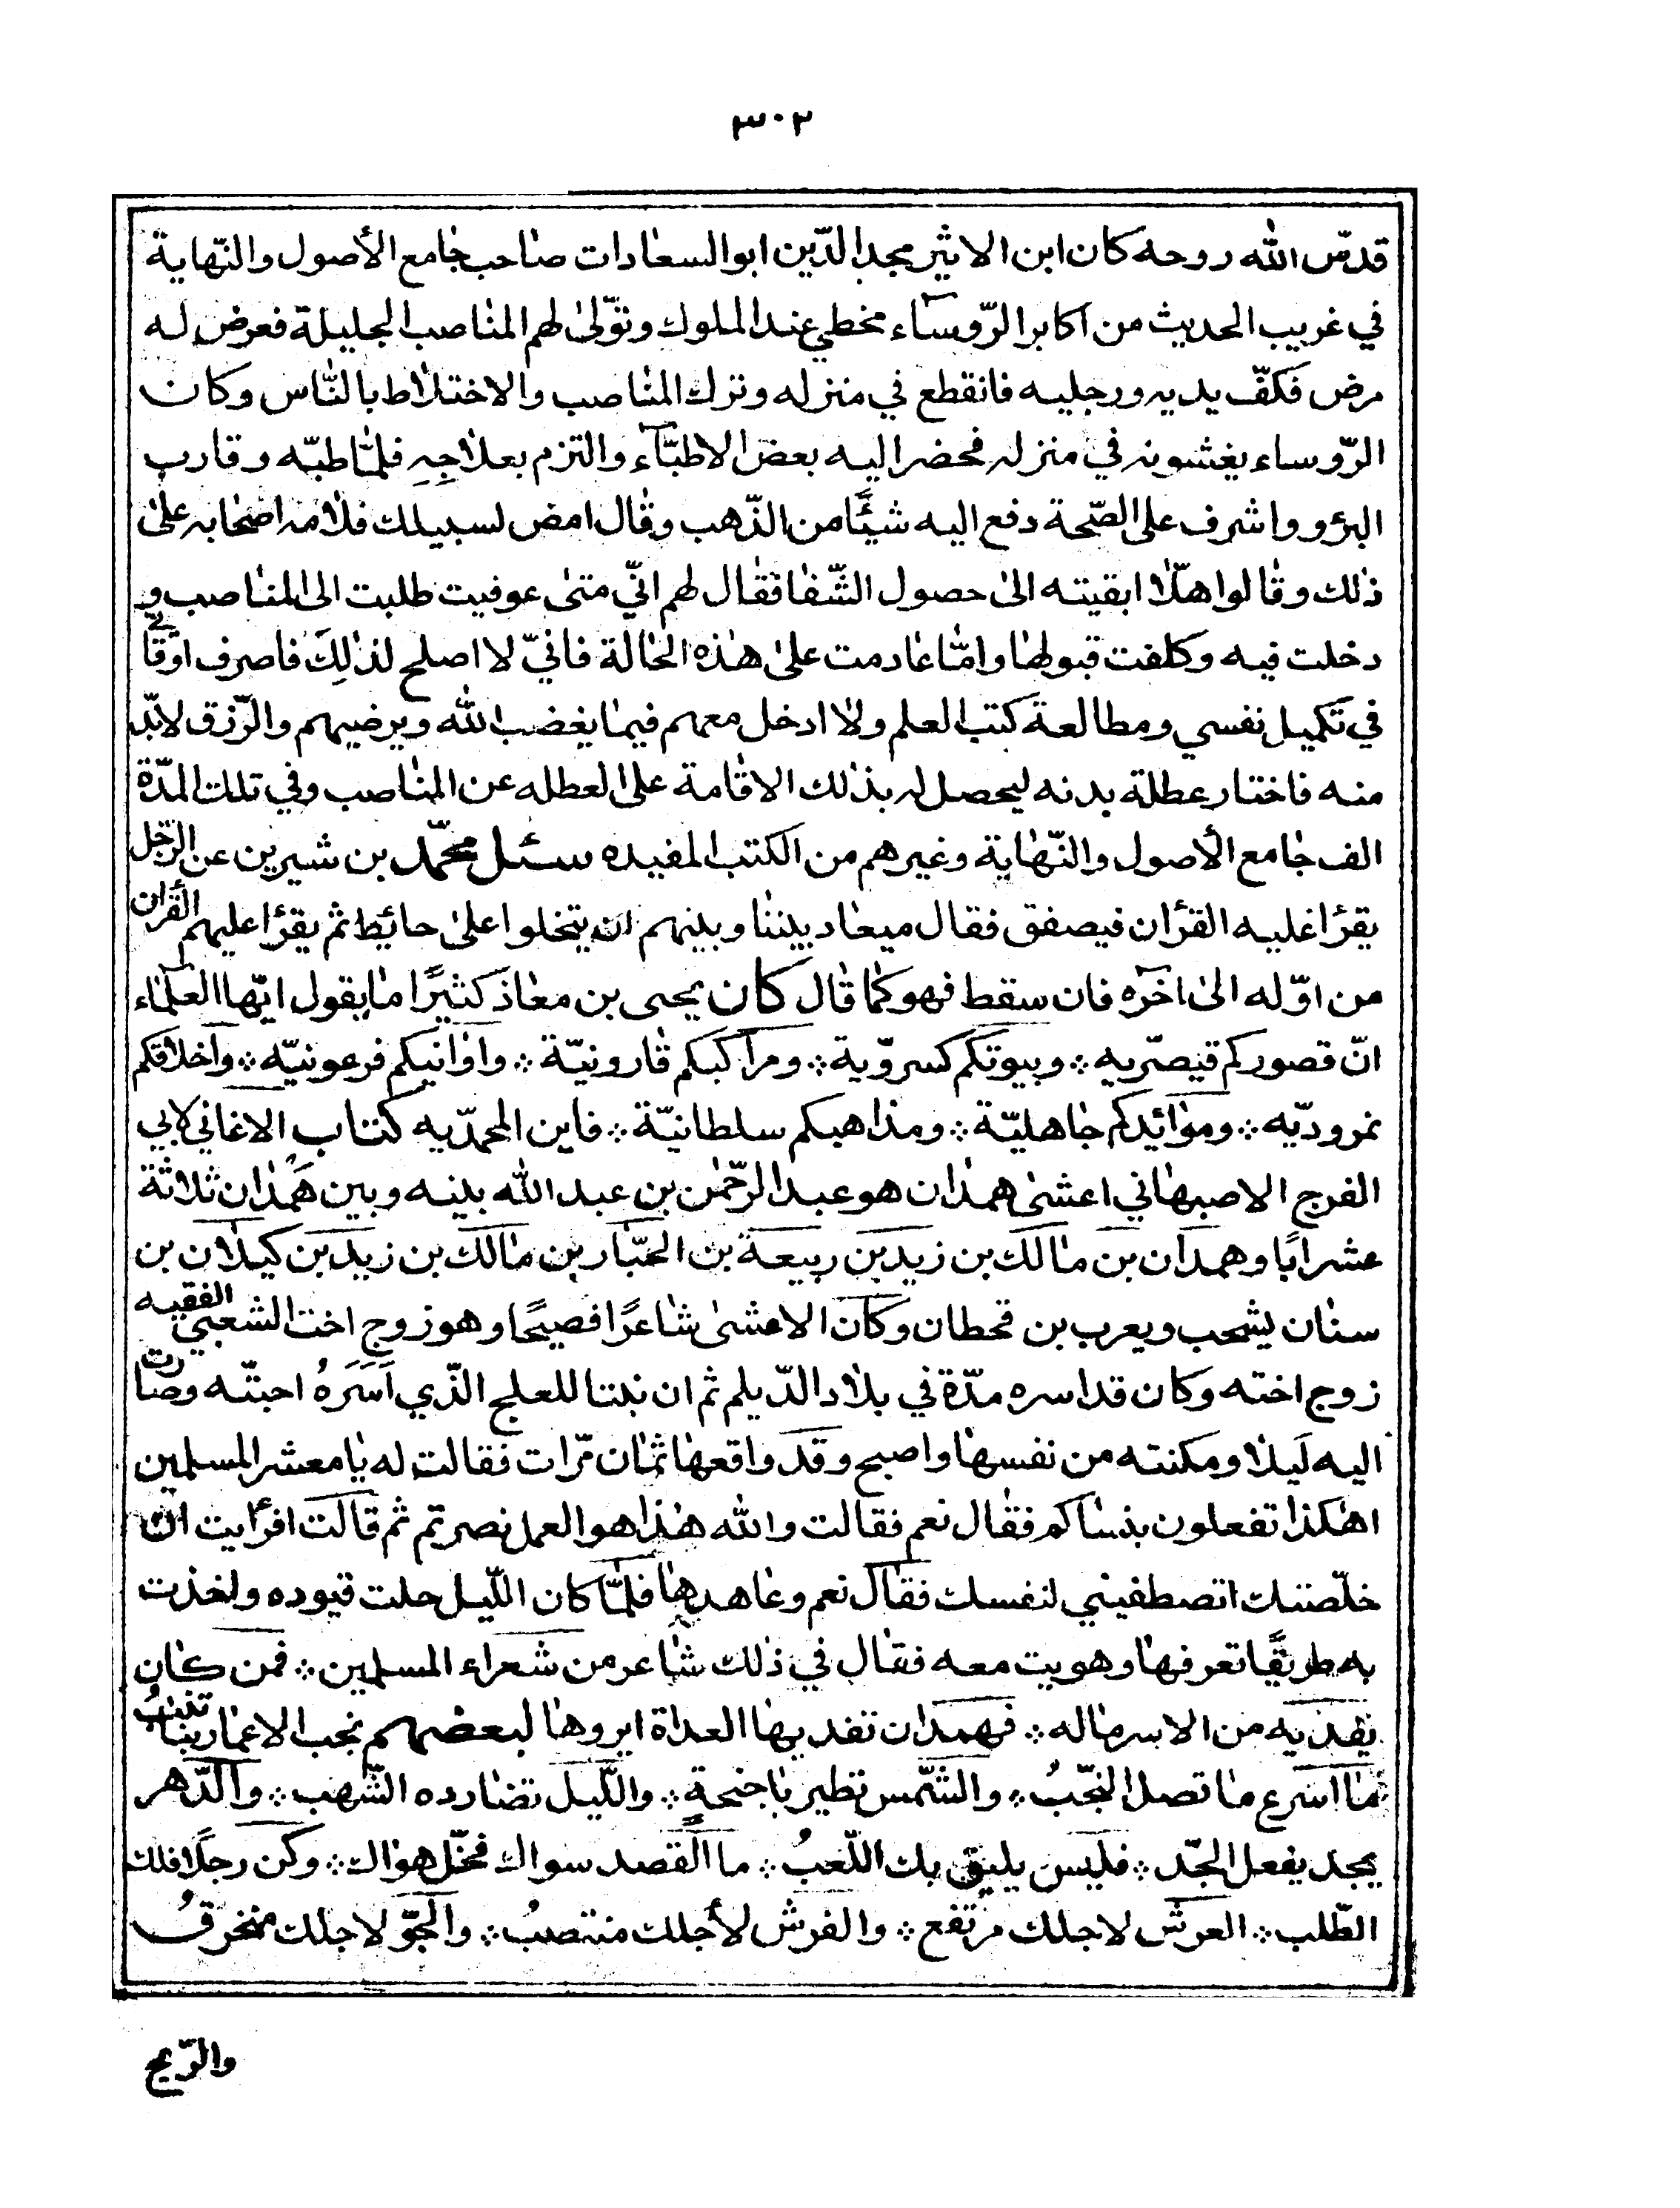 ٣٠٢
قدّس الله روحه كان ابن الاثير مجد الدّين ابو السعادات صاحب جامع الأصول والنّهاية
في غريب الحديث من اكابر الرّوسآء مخطي عند الملوك وتوّلى لهم المناصب الجليلة فعرض له
مرض فكفّ يديه ورجليه فانقطع في منزله وترك المناصب والاختلاط بالنّاس وكان
الرّوساء يغشونه في منزله فحضر اليه بعض الاطبّآء والتزم بعلاجِهِ فلمّا طبّه وقارب
البرؤ واشرف على الصّحة دفع اليه شيئًا من الذّهب وقال امض لسبيلك فلامه اصحابه على
ذلك وقالوا هلّا ابقيته الى حصول الشّفا فقال لهم انّي متى عوفيت طلبت الى المناصب و
دخلت فيه وكلفت قبولها وامّا ما دمت على هذه الحالة فانيّ لا اصلح لذلِكَ فاصرف اوقاتي
في تكميل نفسي ومطالعة كتب العلم ولا ادخل معهم فيما يغضب الله ويرضيهم والرّزق لابدّ
منه فاختار عطلة بدنه ليحصل له بذلك الاقامة على العطله عن المناصب وفي تلك المدّة
الف جامع الأصول والنّهاية وغيرهم من الكتب المفيده سئل محمّد بن شيرين عن الرّجل
يقرأ عليه القرأن فيصفق فقال ميعاد بيننا وبينهم ان يتخلوا على حائط ثم يقرأ عليهم القرأن
من اوّله الى اخره فان سقط فهو كما قال كان يحيى بن معاذ كثيرًا ما يقول ايّها العلماء
انّ قصوركم قيصرّيه ؞ وبيوتكم كسروّية ؞ ومراكبكم قارونيّة ؞ واوانيكم فرعونيّه ؞ واخلاقكم
نمروديّه ؞ وموائدكم جاهليّة ؞ ومذاهبكم سلطانيّة ؞ فاين المحمدّيه كتاب الاغاني لابي
الفرج الاصبهاني اعشى همدان هو عبد الرّحمن بن عبد الله بينه وبين همدان ثلاثة
عشر ابًا وهمدان بن مالك بن زيد بن ربيعة بن الحبّار بن مالك بن زيد بن كيلان بن
سنان يشحب ويعرب بن قحطان وكان الاعشى شاعرًا فصيحًا وهو زوج اخت الشعبي الفقيه
زوج اخته وكان قد اسره مدّة في بلاد الدّيلم ثم ان بنتا للعلج الذّي اَسَرَهُ احبتّه وصارت
اليه لَيلا ومكنته من نفسها واصبح وقد واقعها ثمان مرّات فقالت له يا معشر المسلمين
اهكذا تفعلون بنساكم فقال نعم فقالت والله هذا هو العمل نصرتم ثم قالت افرأيت ان
خلّصتك اتصطفيني لنفسك فقال نعم وعاهدها فلمّا كان اللّيل حلت قيوده واخذت
به طريقًا تعرفها وهويت معه فقال في ذلك شاعر من شعراء المسلمين ؞ فمن كان
يفديه من الاسر ماله ؞ فهمدان تفديها العداة ايروها لبعضهم نجب الاعمار بنا تنتهبُ
ما اسرع ما تصل النجّبُ ؞ والشّمس تطير باجنحةٍ ؞ واللّيل تضارده الشّهب ؞ والدّهر
يجد يفعل الجّد ؞ فليس يليق بك اللّعبُ ؞ ما القصد سواك فخلّ هواك ؞ وكن رجلًا فلك
الطّلب ؞ العرش لاجلك مرتفع ؞ والفرش لأجلك منتصبُ ؞ والجوّ لاجلك منخرقُ
والرّيح